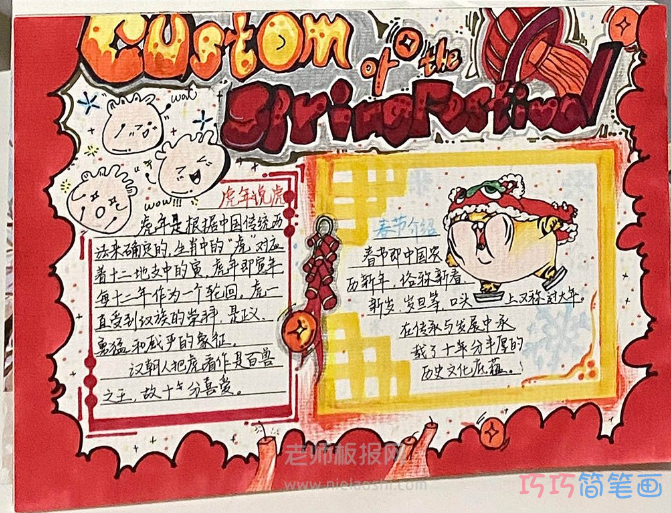 Custom
of the
Spring Festival
wow
wow!!!
虎年说虎
虎年是根据中国传统历
法来确定的,生肖中的"虎"对应
着十二地支中的寅,虎年即寅年
每十二年作为一个轮回,虎一
直受到汉族的崇拜,是正义、
勇猛和威严的象征。
汉朝人把虎看作是百兽
之王,故十分喜爱。
春节介绍
春节即中国农
历新年,俗称新春、
新岁,岁旦等,口头上又称过大年。
在传承与发展中承
载了十分丰厚的
历史文化底蕴。
老师板报网
www.nielaoshi.com
巧巧简笔画